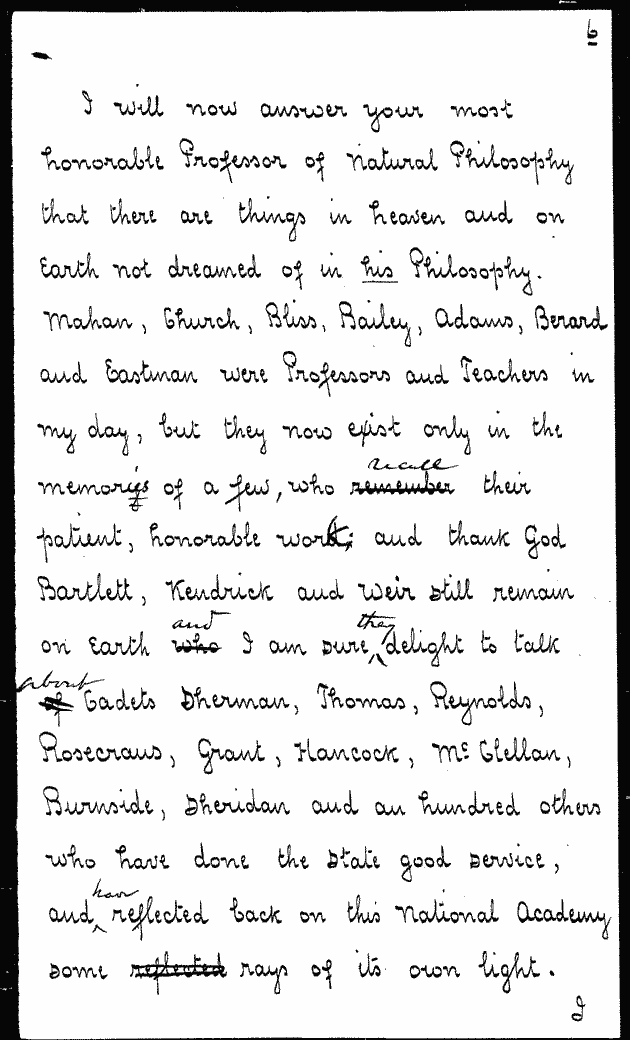 6
I will now answer your most
honorable Professor of Natural Philosophy
that there are things in heaven and on
Earth not dreamed of in his Philosophy.
Mahan, Church, Bliss, Bailey, Adams, Berard
and Eastman were Professors and Teachers in
my day, but they now exist only in the
recall
memories of a few, who remember their
patient, honorable work; and thank God
Bartlett, Kendrick and Weir still remain
and they
on Earth who I am sure delight to talk
about
of Cadets Sherman, Thomas, Reynolds,
Rosecrans, Grant, Hancock, McClellan,
Burnside, Sheridan and an hundred others
who have done the State good service,
have
and reflected back on this National Academy
some reflected rays of its own light.
I